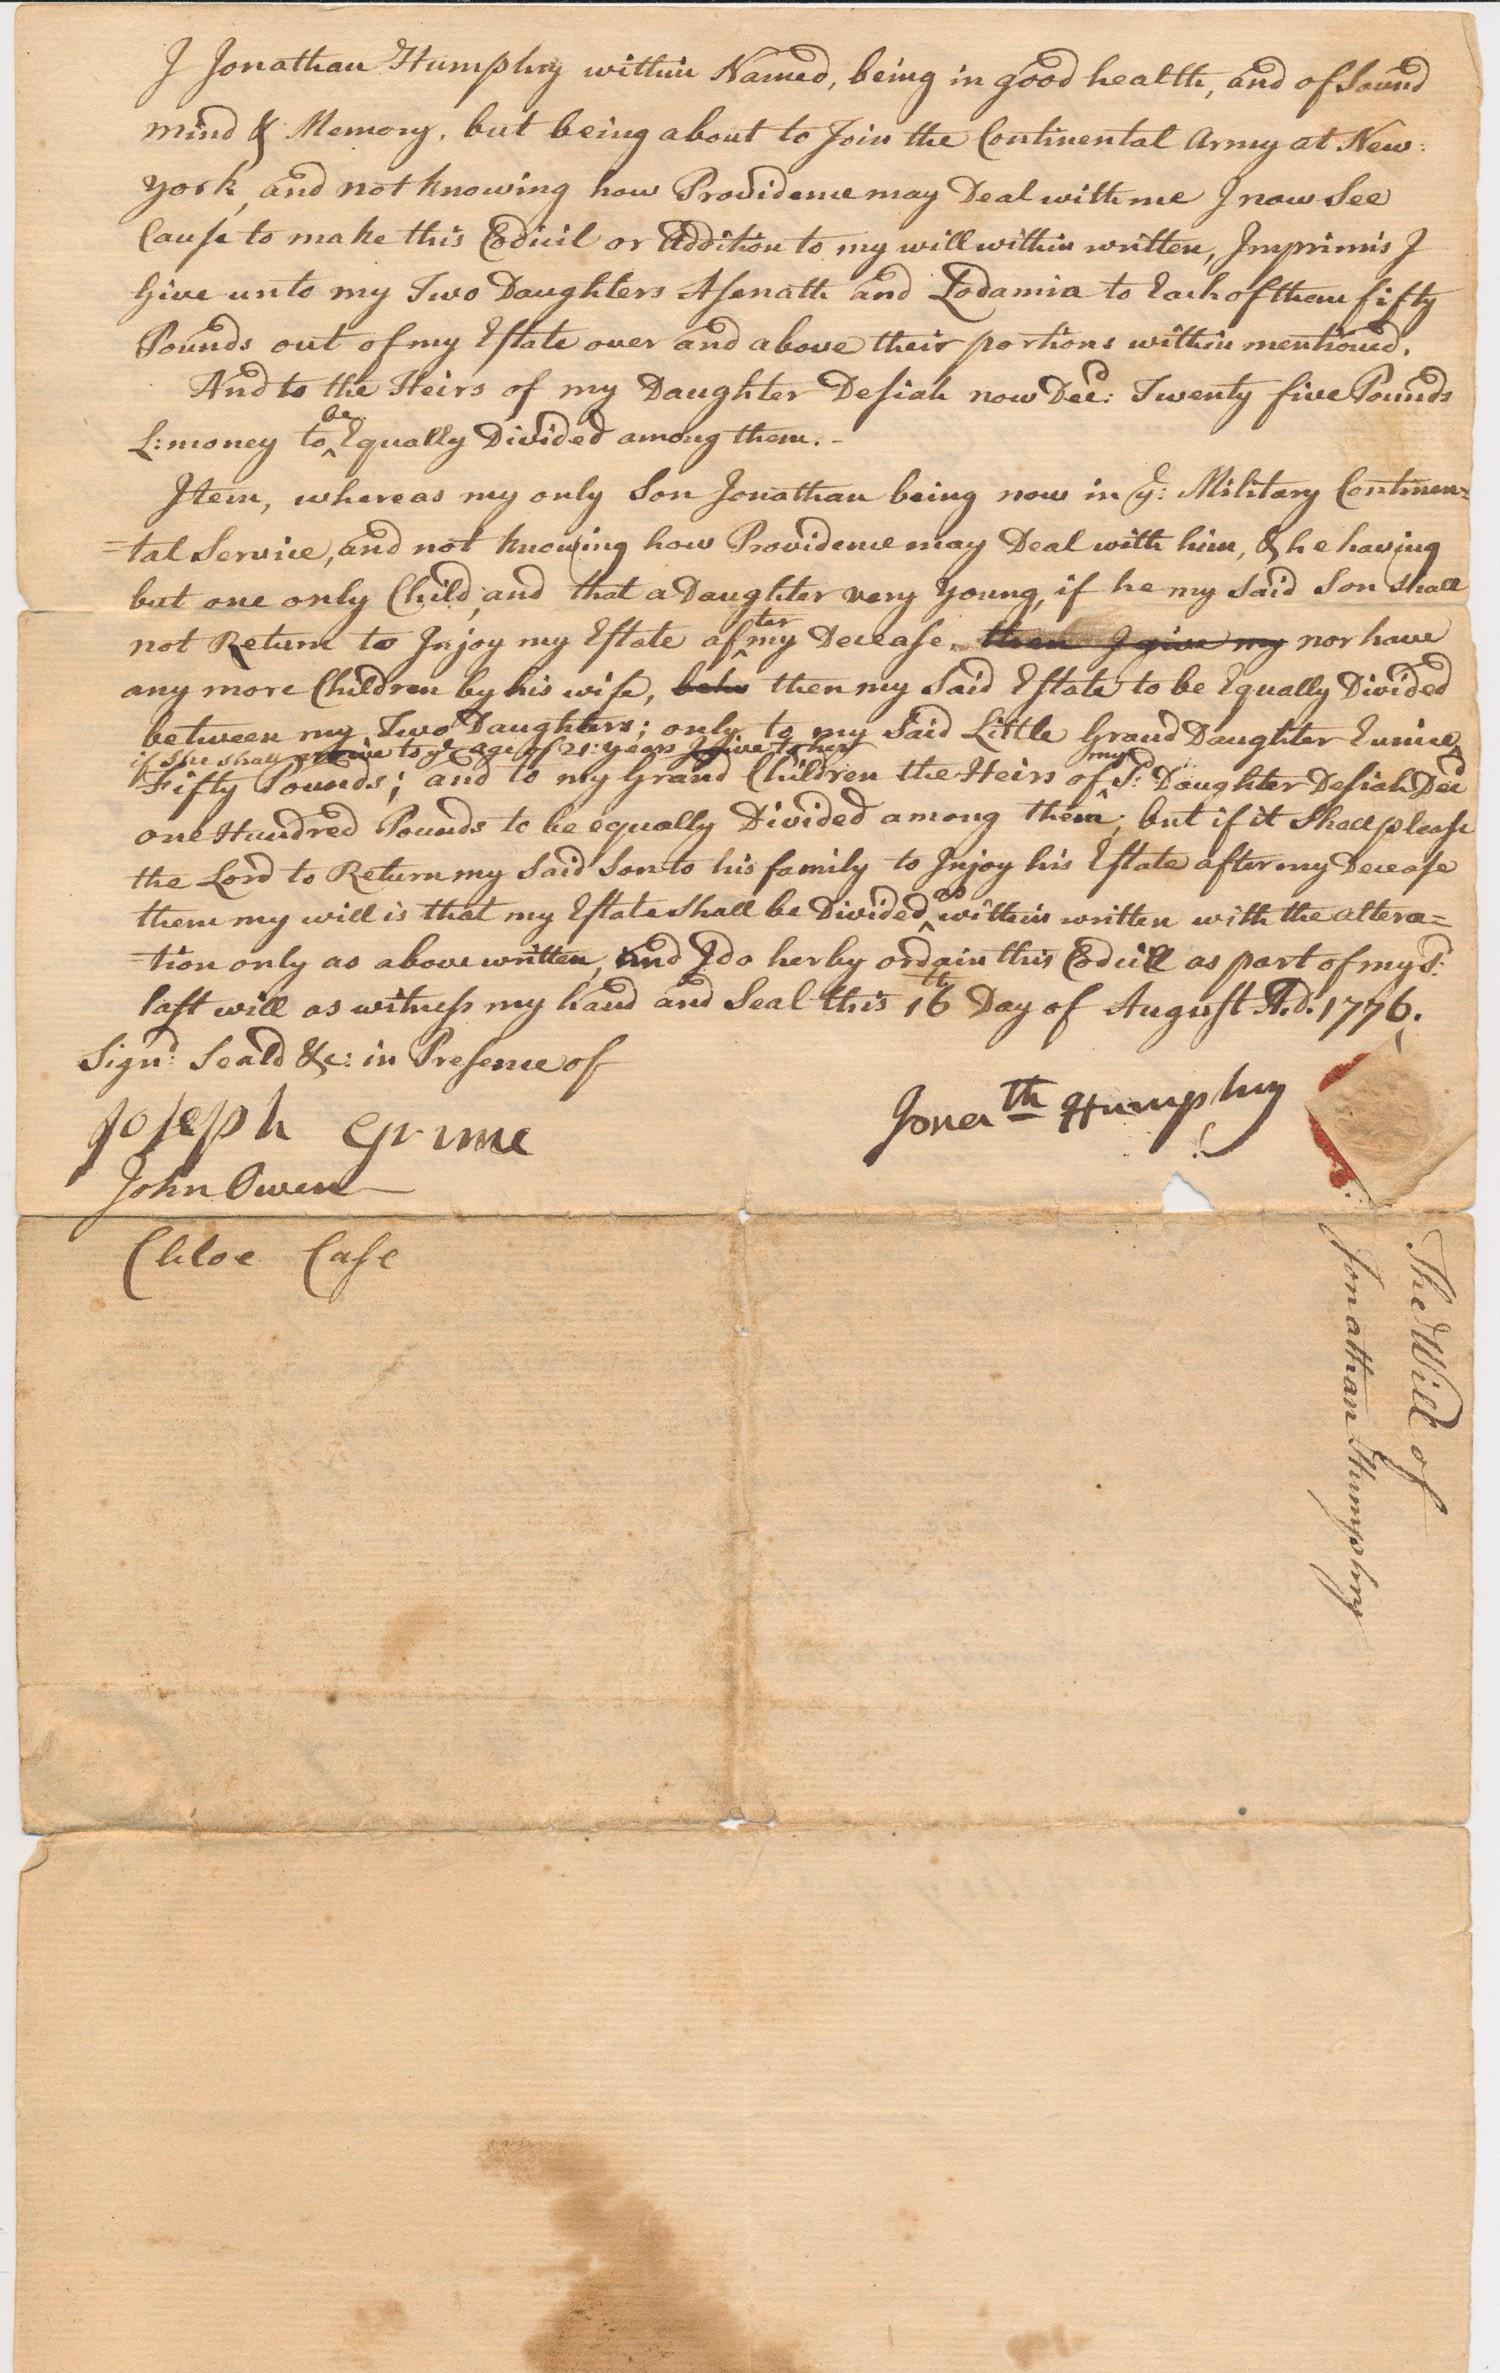 I Jonathan Humphry within Named, being in good health, and of Sound
mind & Memory, but being about to Join the Continental Army at New-
york, and not knowing how Providence may Deal with me I now See
Cause to make this Codicil or Addition to my will within written, Imprimis I
Give unto my Two Daughters Asenath and Lodamia to Each of them fifty
Pounds out of my Estate over and above their portions within mentioned.
And to the Heirs of my Daughter Desiah now Decd: Twenty five Pounds
L: money to be Equally Divided among them. -
Item, whereas my only Son Jonathan being now in ye: Military Continen=
=tal Service, and not knowing how Providence may Deal with him, & he having
but one only Child, and that a Daughter very Young, if he my Said Son Shall
not Return to Injoy my Estate after my Decease, then I give my nor have
any more Children by his wife, then my Said Estate to be Equally Divided
between my Two Daughters; only to my Said Little Grand Daughter Eunice
if She Shall arive to ye age of 21: years I give to her
Fifty Pounds; and to my Grand Children the Heirs of my Sd: Daughter Desiah Decd
one Hundred Pounds to be equally Divided among them; but if it Shall please
the Lord to Return my Said Son to his family to Injoy his Estate after my Decease
then my will is that my Estate Shall be Divided as within written with the altera=
=tion only as above written, and I do herby ordain this Codicill as part of my Sd:
last will as witness my hand and Seal this 16th Day of August A.d. 1776.
Signd: Seald &c: in Presence of
Jonath Humphry
Joseph Grime
John Owen
Chloe Case
The Will of
Jonathan Humphry